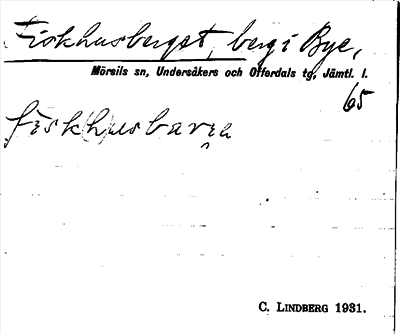 Fiskhusberget, berg i Bye,
Mörsils sn, Undersåkers och Offerdals tg, Jämtl. l.
65
fisk(h)usbärje
C. LINDBERG 1931.